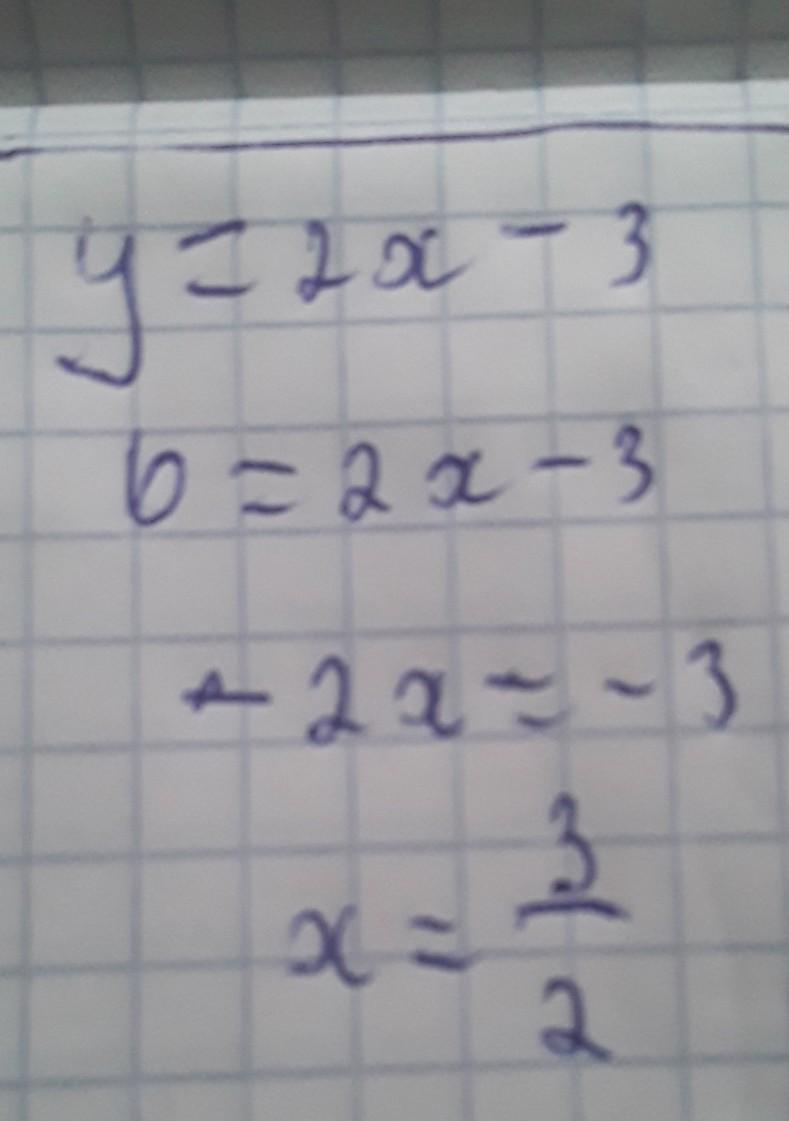 y = 2x - 3
0 = 2x - 3
- 2x = - 3
x = 3/2